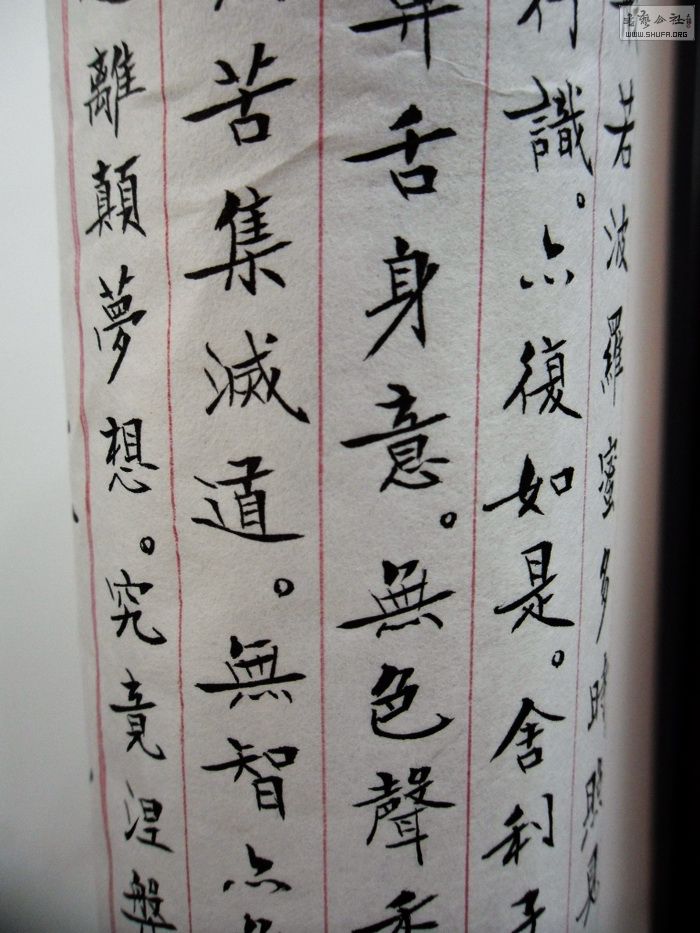 若波羅蜜多時照見
行識。亦復如是。舍利子
鼻舌身意。無色聲香
苦集滅道。無智亦
離顛夢想。究竟涅槃
書藝公社
WWW.SHUFA.ORG